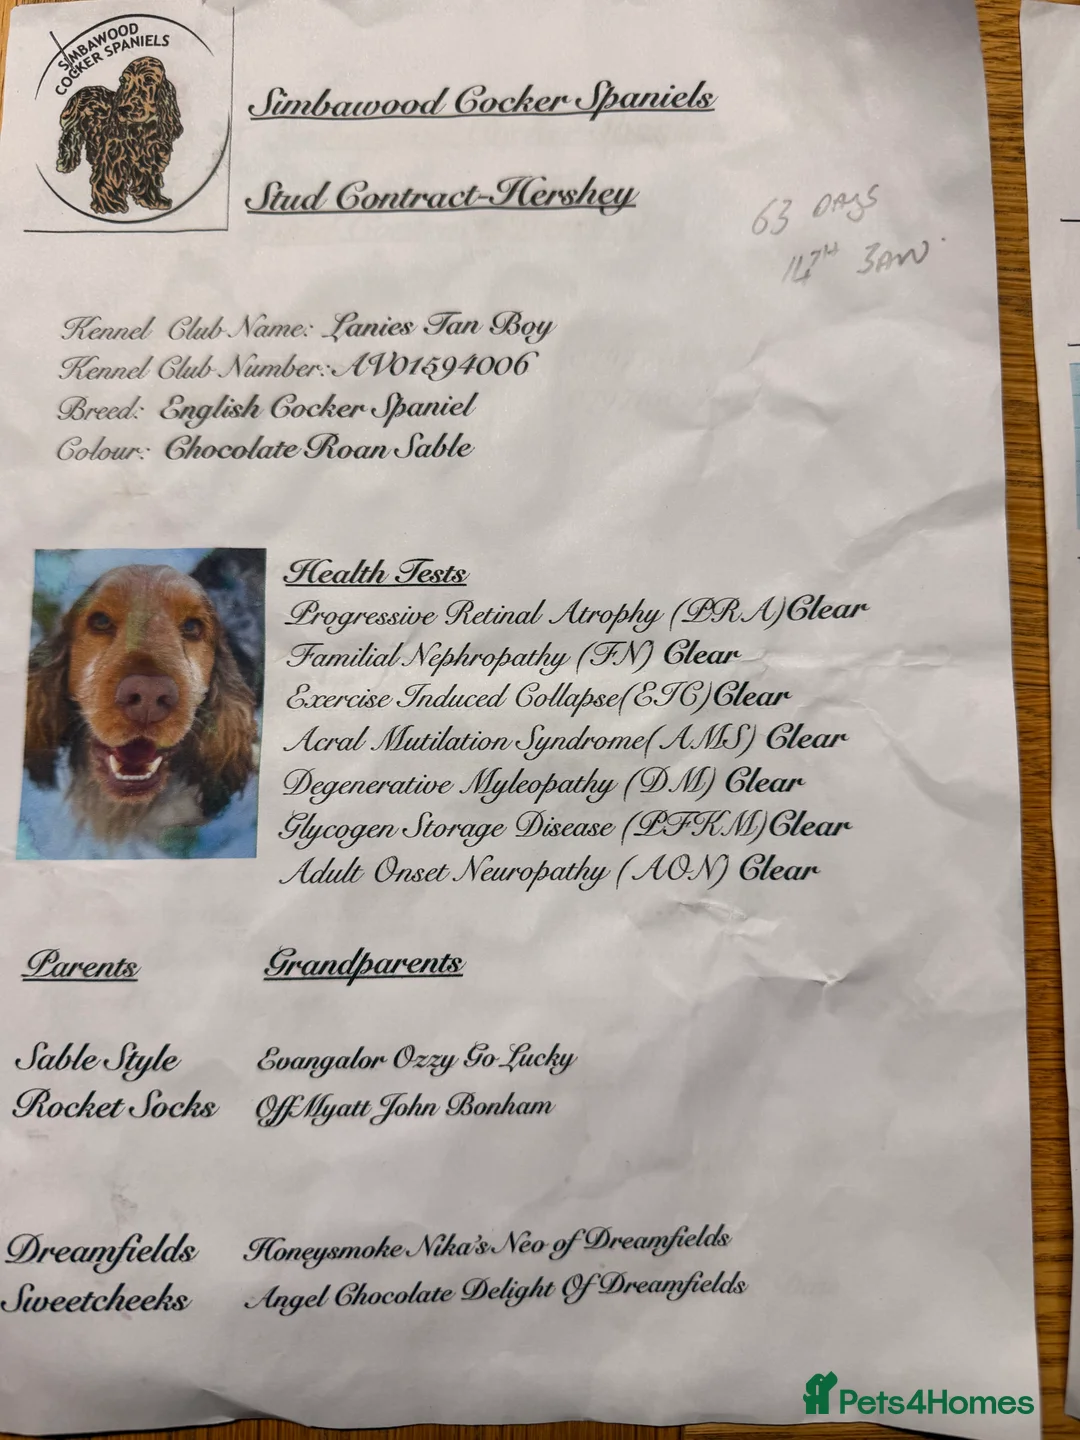 SIMBAWOOD
COCKER SPANIELS
Simbawood Cocker Spaniels
Stud Contract-Hershey
63 DAYS
14TH JAN.
Kennel Club Name: Lanies Tan Boy
Kennel Club Number: AV01594006
Breed: English Cocker Spaniel
Colour: Chocolate Roan Sable
Health Tests
Progressive Retinal Atrophy (PRA)Clear
Familial Nephropathy (FN) Clear
Exercise Induced Collapse(EIC)Clear
Acral Mutilation Syndrome( AMS) Clear
Degenerative Myleopathy (DM) Clear
Glycogen Storage Disease (PFKM)Clear
Adult Onset Neuropathy ( AON) Clear
Parents Grandparents
Sable Style Evangalor Ozzy Go Lucky
Rocket Socks OffMyatt John Bonham
Dreamfields Honeysmoke Nika's Neo of Dreamfields
Sweetcheeks Angel Chocolate Delight Of Dreamfields
Pets4Homes